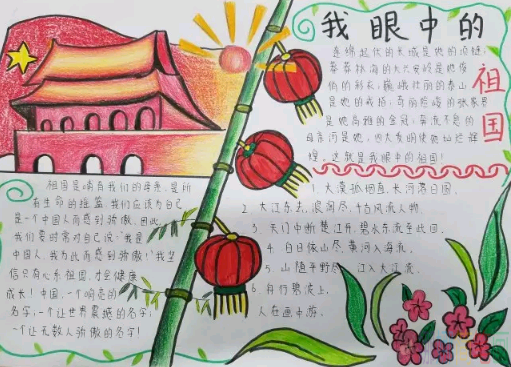 我眼中的
祖国
连绵起伏的长城是她的
莽莽林海的大兴安岭是她
的 巍峨壮丽的泰山
是她的 奇丽 的张家界
是她高雅的 奔流不息的
母亲河是她 四大发明使她灿烂辉
煌。这就是我眼中的祖国!
祖国是哺育我们的母亲,是所
有生命的摇篮,我们应该为自己
是一个中国人而感到骄傲。因此,
我们要时常对自己说:“我是
中国人,我为此而感到骄傲!”我坚
信只有心系祖国,才会健康
成长!中国,一个响亮的
名字;一个让世界震撼的名字;
一个让无数人骄傲的名字!
1. 大漠孤烟直,长河落日圆。
2. 大江东去,浪淘尽,千古风流人物。
3. 天门中断楚江开,碧水东流至此回。
4. 白日依山尽,黄河入海流。
5. 山随平野尽,江入大荒流。
6. 舟行碧波上,
人在画中游。